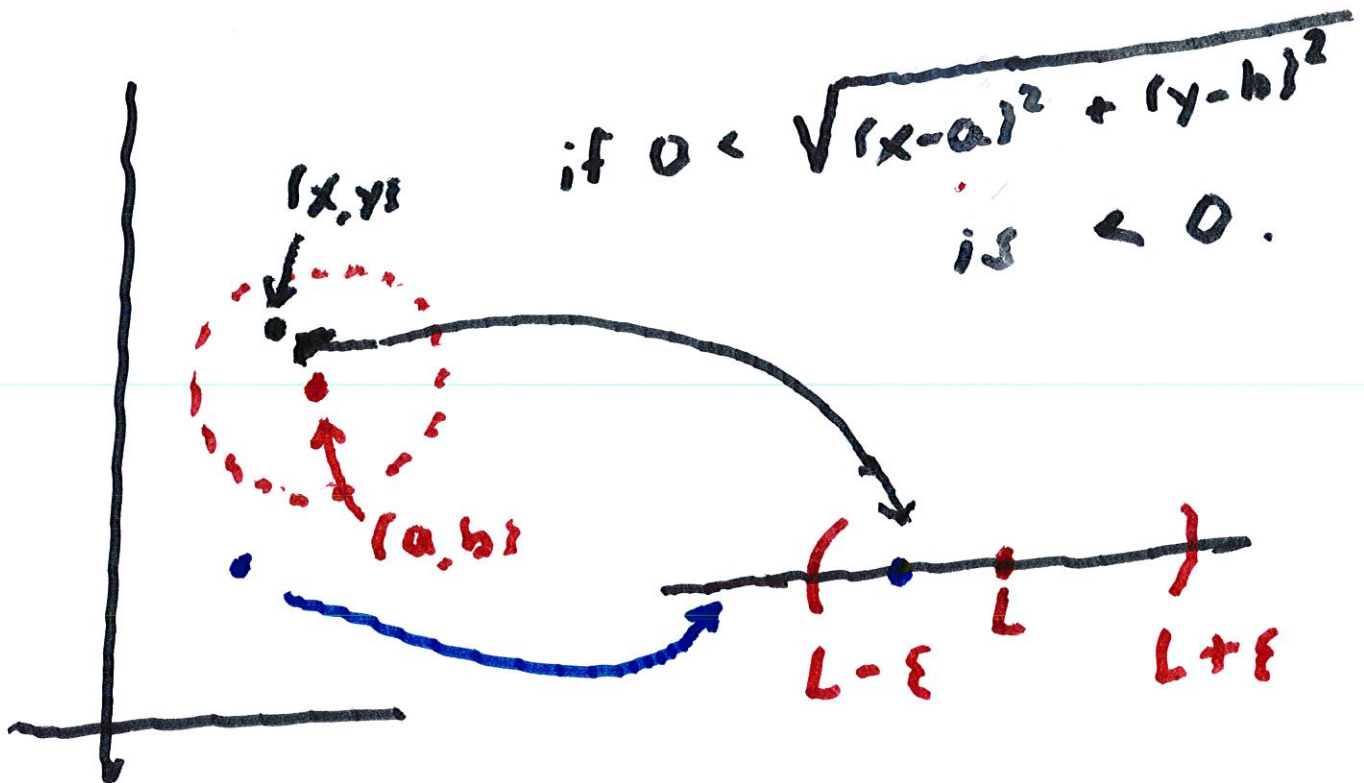 if 0 < √(x-a)² + (y-b)²
is < 0.
(x,y)
(a,b)
L
L-ε
L+ε